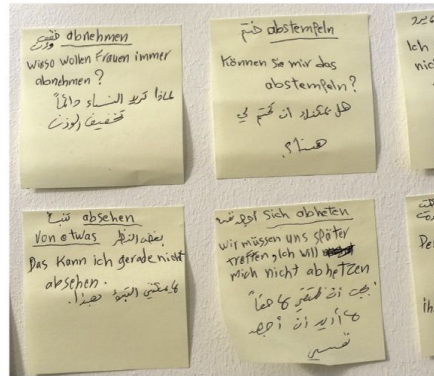 abnehmen
Wieso wollen Frauen immer
abnehmen?
لماذا تريد النساء دائماً
تخفيف الوزن
ختم abstempeln
Können Sie mir das
abstempeln?
هل يمكنك ان تختم لي
هذا؟
Ich
nic
تنبأ absehen
von etwas بغض النظر
Das kann ich gerade nicht
absehen.
لا يمكنني التنبؤ بهذا.
sich abhetzen أجهد نفسه
wir müssen uns später
treffen, ich will
mich nicht abhetzen
يجب أن نلتقي لاحقاً
لا أريد أن أجهد
نفسي
De
ih